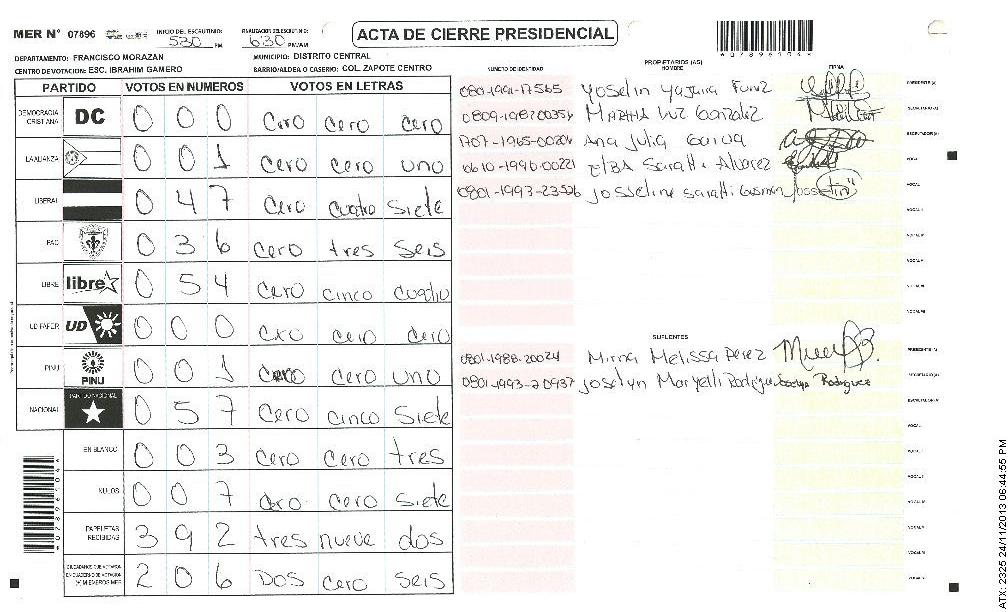 MER N° 07896 INICIO DEL ESCRUTINIO: 530 PM FINALIZACION DEL ESCRUTINIO: 630 PM/AM
ACTA DE CIERRE PRESIDENCIAL
DEPARTAMENTO: FRANCISCO MORAZAN MUNICIPIO: DISTRITO CENTRAL
CENTRO DE VOTACION: ESC. IBRAHIM GAMERO BARRIO/ALDEA O CASERIO: COL. ZAPOTE CENTRO
PARTIDO VOTOS EN NUMEROS VOTOS EN LETRAS
DEMOCRACIA CRISTIANA DC 0 0 0 Cero Cero Cero
LA ALIANZA 0 0 1 Cero Cero uno
LIBERAL 0 4 7 Cero Cuatro Siete
PAC 0 3 6 Cero tres Seis
LIBRE libre 0 5 4 Cero cinco cuatro
UD FAPER UD 0 0 0 Cero cero Cero
PINU PINU 0 0 1 Cero Cero uno
NACIONAL PARTIDO NACIONAL 0 5 7 Cero Cinco Siete
EN BLANCO 0 0 3 Cero Cero tres
NULOS 0 0 7 Cero Cero Siete
PAPELETAS RECIBIDAS 3 9 2 tres nueve dos
CIUDADANOS QUE VOTARON EN CUADERNO DE VOTACION (+) MIEMBROS MER 2 0 6 Dos Cero Seis
NUMERO DE IDENTIDAD PROPIETARIOS (AS) NOMBRE FIRMA
0801-1991-17565 Yoselin Yajaira Funez PRESIDENTE (A)
Martha Luz Gonzalez SECRETARIO (A)
1707-1965-00204 Ana Julia Garcia ESCRUTADOR (A)
0610-1990-00221 Elba Saratti Alvarez VOCAL
0801-1993-23526 Josseline Saratti Guzman VOCAL
SUPLENTES
0801-1988-20024 Mirna Melissa Perez PRESIDENTE (A)
0801-1993-20937 Joselyn Maryelli Rodriguez Joselyn Rodriguez SECRETARIO (A)
ESCRUTADOR (A)
ATX: 2325 24/11/2013 06:44:55 PM